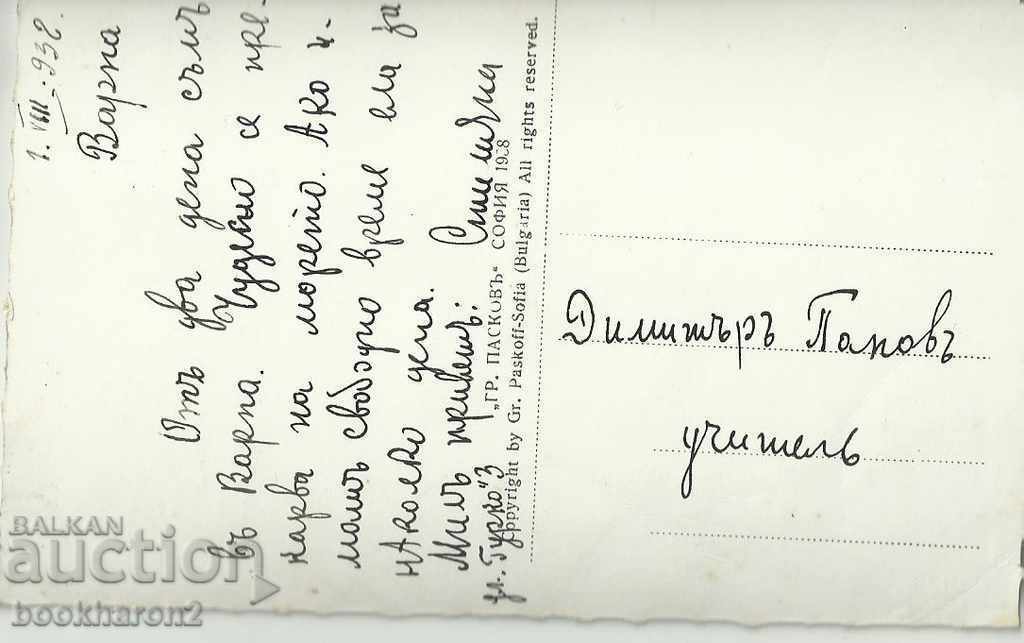 1. VIII. 932.
Варна
Отъ два дена съмъ
въ Варна. Чудно се пре-
карва на морето. Ако и-
машъ свободно време ела за
няколко дена.
Милъ приветъ:
ул. "Гурко" 3
„ГР. ПАСКОВЪ“ СОФИЯ 1928
Copyright by Gr. Paskoff-Sofia (Bulgaria) All rights reserved.
Димитъръ Пановъ
учитель
BALKAN
auction
bookharon2